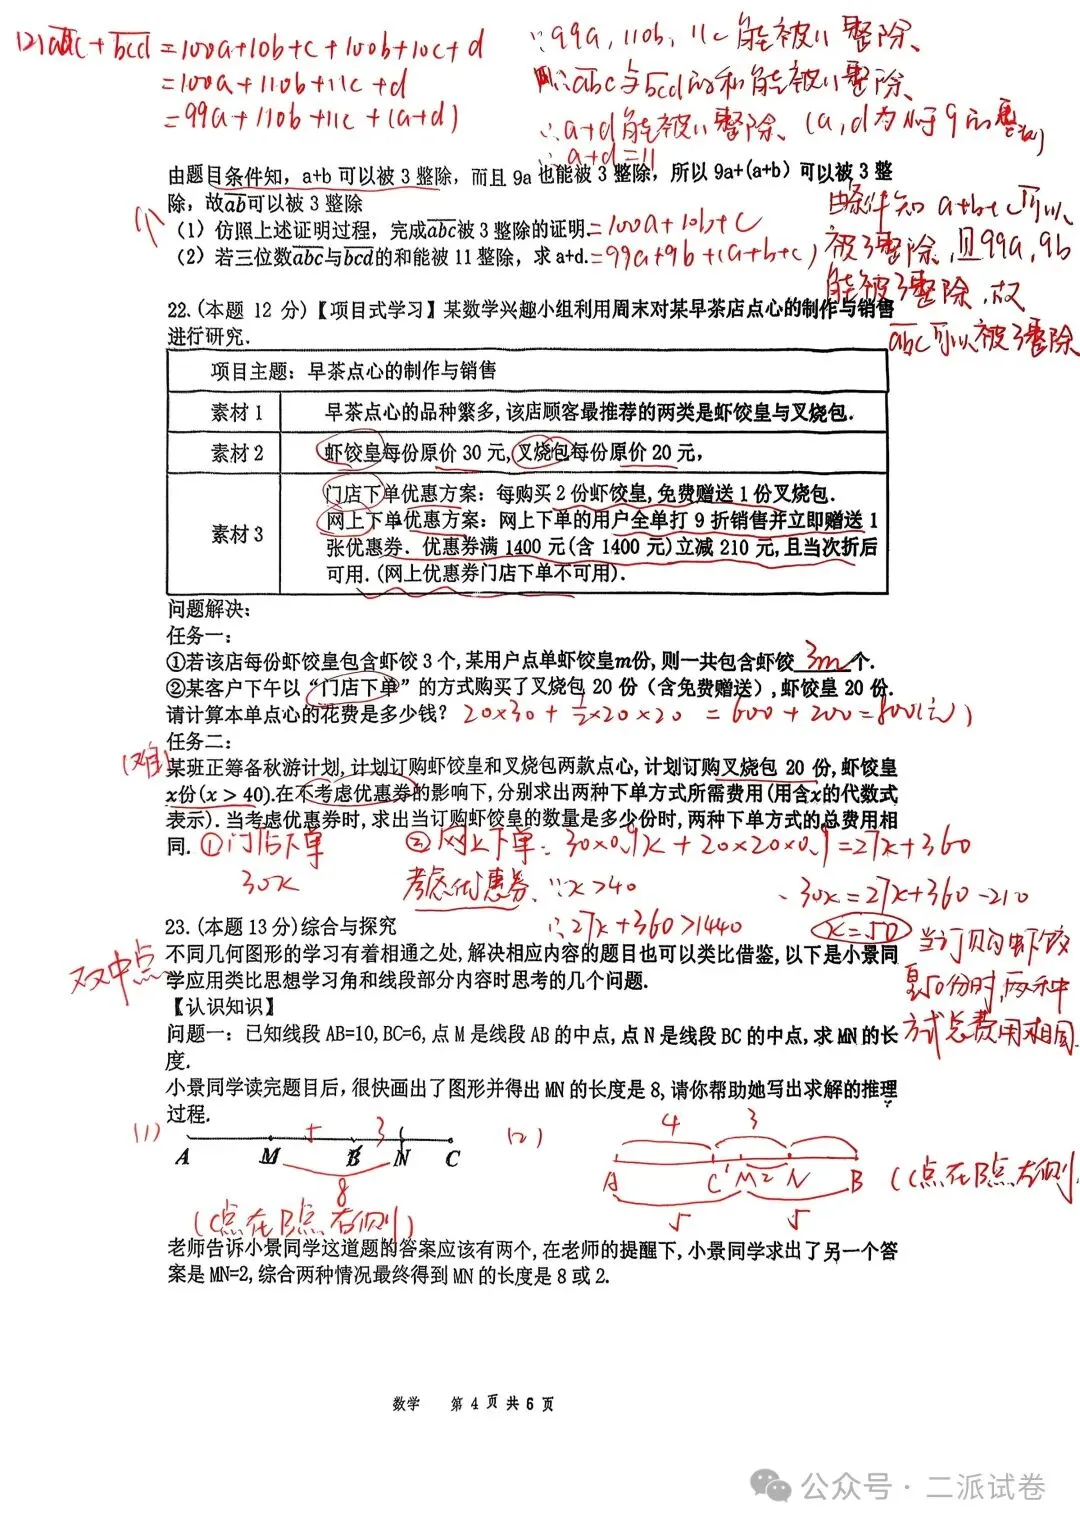 (2) abc + bcd = 100a+10b+c+100b+10c+d
= 100a+110b+11c+d
= 99a+110b+11c+(a+d)
∵99a, 110b, 11c能被11整除、
∴abc与bcd的和能被11整除、
∴a+d能被11整除、(a,d为小于9的整数)
∴a+d=11
由题目条件知，a+b 可以被 3 整除，而且 9a 也能被 3 整除，所以 9a+(a+b）可以被 3 整
除，故ab可以被 3 整除
(1)
（1）仿照上述证明过程，完成abc被 3 整除的证明.
=100a+10b+c
（2）若三位数abc与bcd的和能被 11 整除，求 a+d.
=99a+9b+(a+b+c)
由条件知 a+b+c可以
被3整除,且99a,9b
能被3整除,故
abc可以被3整除
22.(本题 12 分)【项目式学习】某数学兴趣小组利用周末对某早茶店点心的制作与销售
进行研究.
项目主题：早茶点心的制作与销售
素材 1
早茶点心的品种繁多,该店顾客最推荐的两类是虾饺皇与叉烧包.
素材 2
虾饺皇每份原价 30 元,叉烧包每份原价 20 元,
素材 3
门店下单优惠方案：每购买 2 份虾饺皇,免费赠送 1 份叉烧包.
网上下单优惠方案：网上下单的用户全单打 9 折销售并立即赠送 1
张优惠券．优惠券满 1400 元(含 1400 元)立减 210 元,且当次折后
可用.(网上优惠券门店下单不可用).
问题解决：
任务一：
①若该店每份虾饺皇包含虾饺 3 个,某用户点单虾饺皇m份,则一共包含虾饺 3m 个.
②某客户下午以“门店下单”的方式购买了叉烧包 20 份（含免费赠送）,虾饺皇 20 份.
请计算本单点心的花费是多少钱？
20×30+1/2×20×20 =600+200=800(元)
任务二：
(难)
某班正筹备秋游计划,计划订购虾饺皇和叉烧包两款点心,计划订购叉烧包 20 份,虾饺皇
x份(x > 40).在不考虑优惠券的影响下,分别求出两种下单方式所需费用(用含x的代数式
表示）.当考虑优惠券时,求出当订购虾饺皇的数量是多少份时,两种下单方式的总费用相
同.
①门店下单
30x
②网上下单: 30×0.9x+20×20×0.9=27x+360
考虑优惠券, ∵x>40
∴27x+360>1440
30x=27x+360-210
x=50
当订购虾饺
皇50份时,两种
方式总费用相同.
23.(本题 13 分)综合与探究
双中点
不同几何图形的学习有着相通之处,解决相应内容的题目也可以类比借鉴,以下是小景同
学应用类比思想学习角和线段部分内容时思考的几个问题.
【认识知识】
问题一：已知线段 AB=10,BC=6,点 M 是线段 AB 的中点,点 N 是线段 BC 的中点,求 MN 的长
度.
小景同学读完题目后，很快画出了图形并得出 MN 的长度是 8,请你帮助她写出求解的推理
过程.
(1)
5 3
A M B N C
8
(C点在B点右侧)
(2)
4 3
A C M 2 N B
5 5
(C点在B点左侧)
老师告诉小景同学这道题的答案应该有两个,在老师的提醒下,小景同学求出了另一个答
案是 MN=2,综合两种情况最终得到 MN 的长度是 8 或 2.
数学 第 4 页 共 6 页
公众号 · 二派试卷